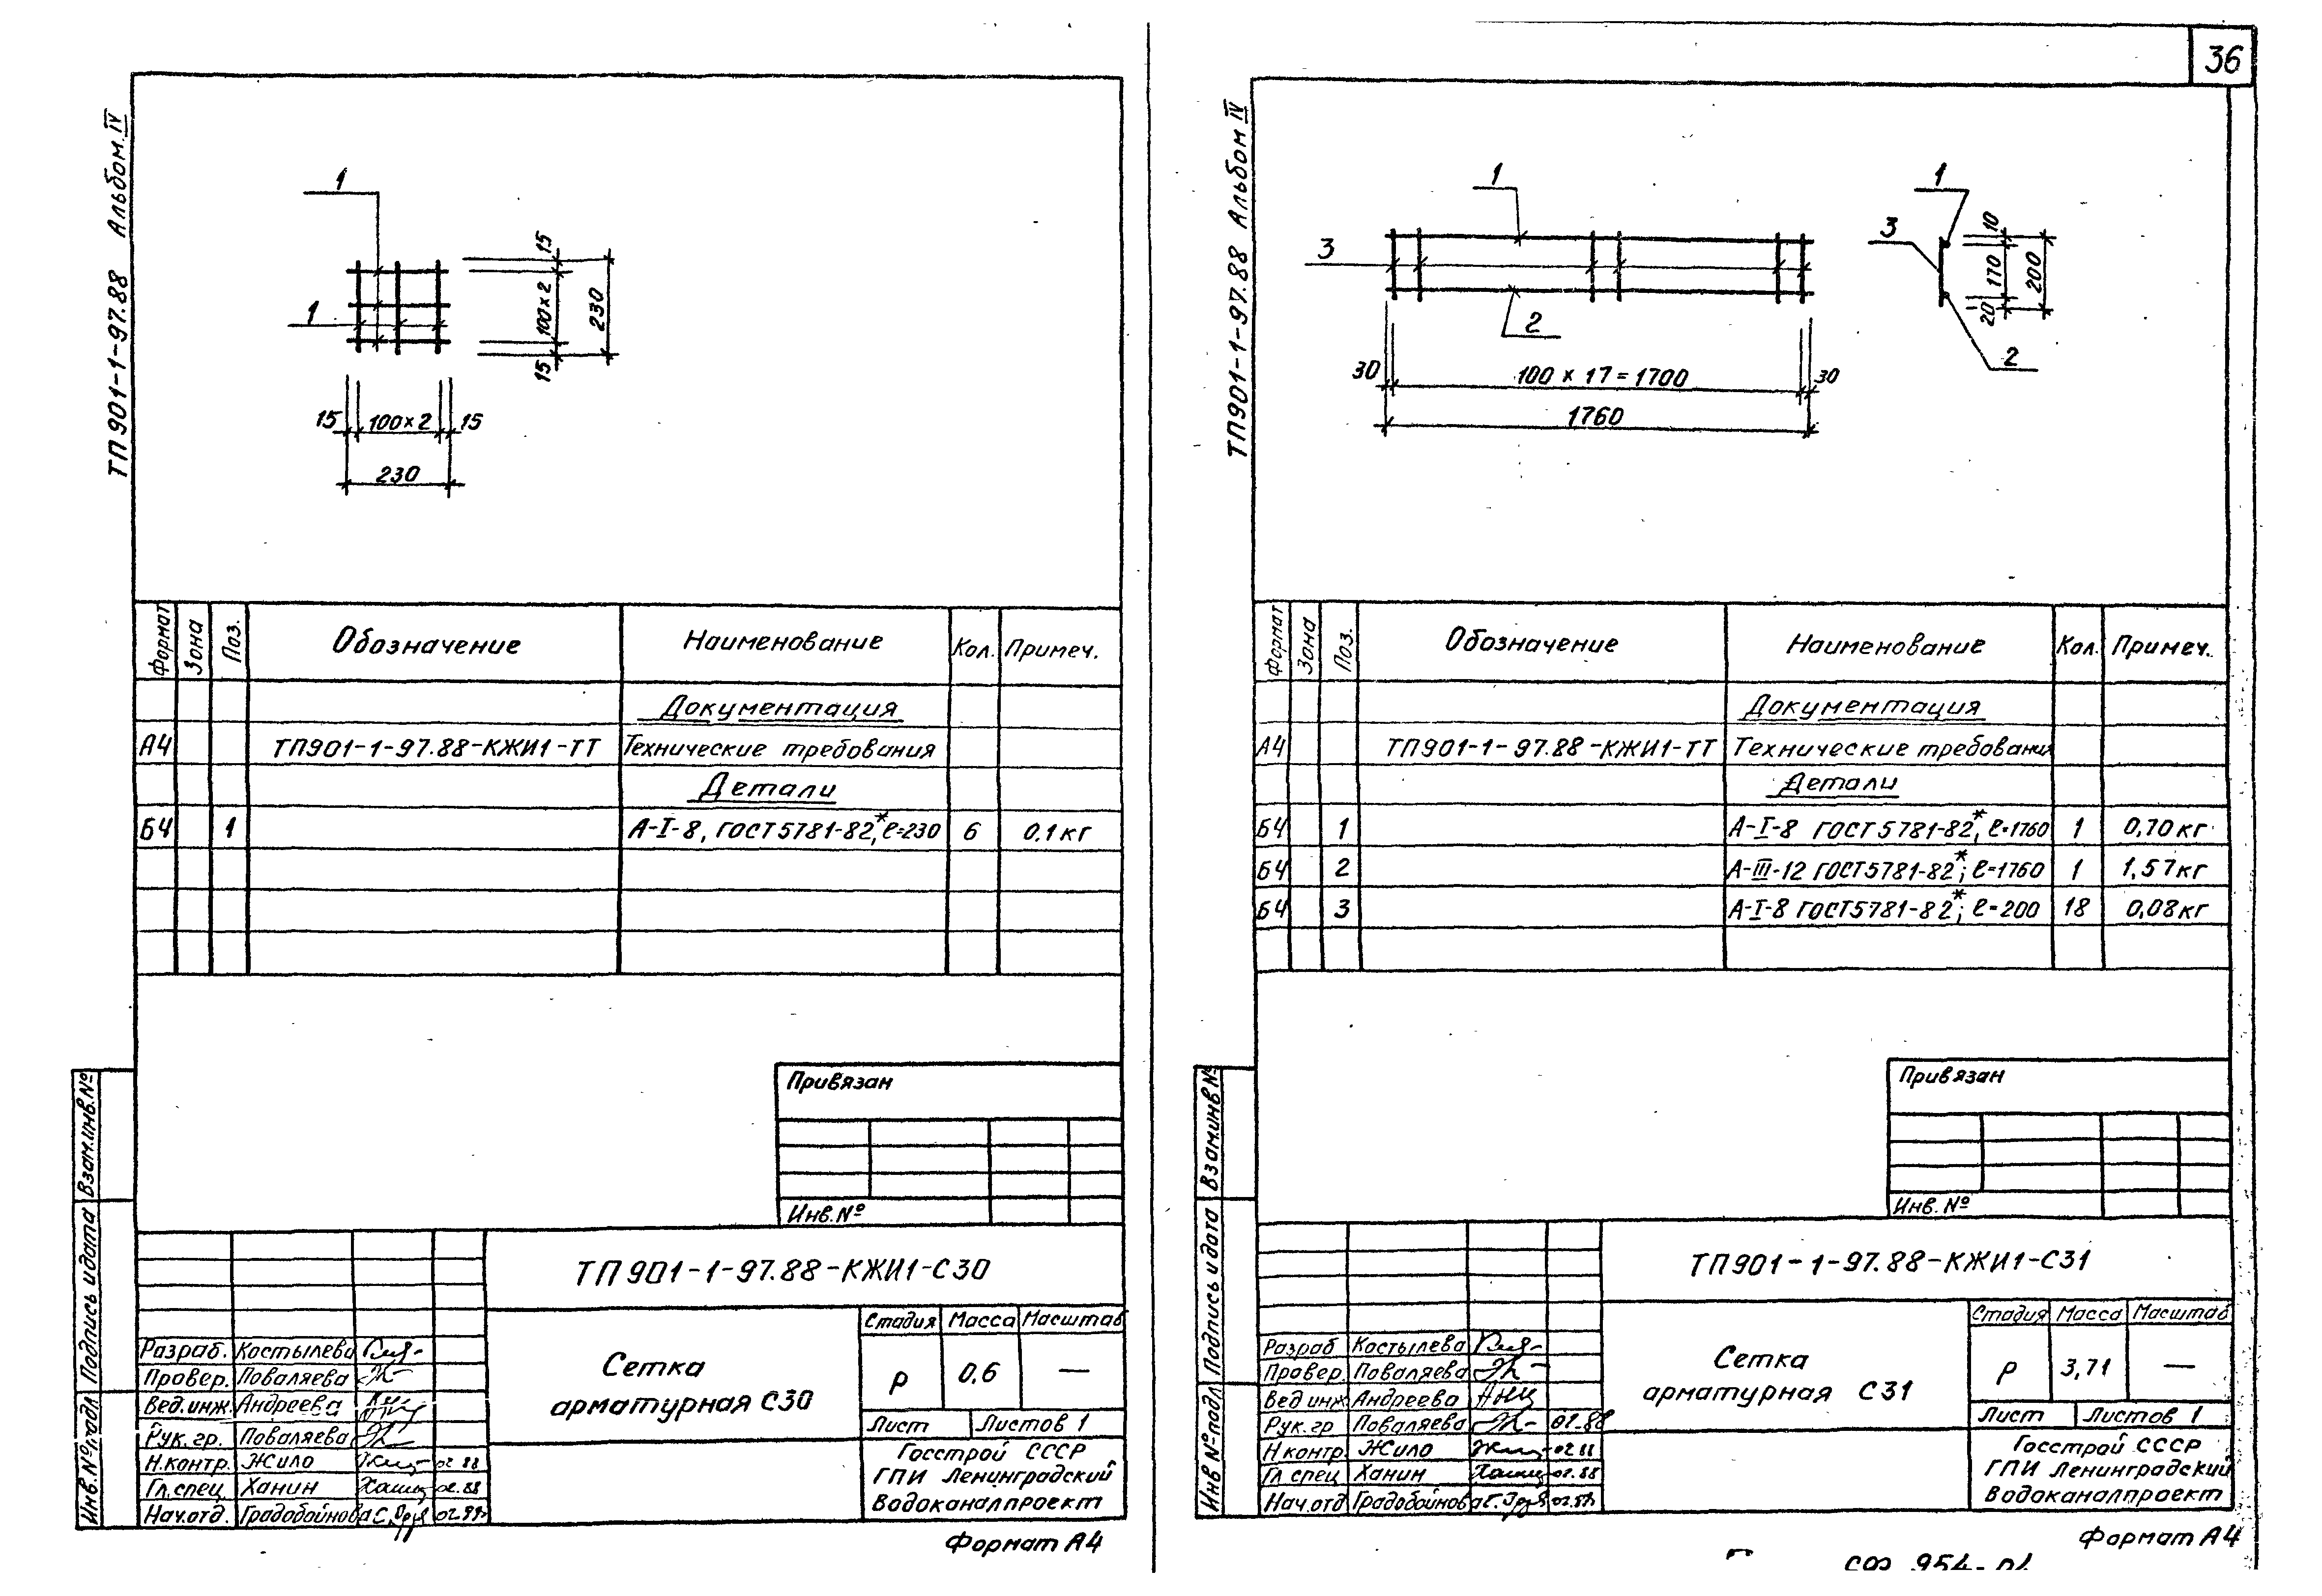 36
ТП901-1-97.88 Альбом IV
1
1
15
100×2
15
230
15
100×2
15
230
Формат
Зона
Поз.
Обозначение
Наименование
Кол.
Примеч.
Документация
А4 ТП901-1-97.88-КЖИ1-ТТ Технические требования
Детали
Б4 1 А-I-8, ГОСТ 5781-82*, ℓ=230 6 0,1кг
Привязан
Инв.№
Взам.инв.№
Подпись и дата
Инв.№подл
ТП901-1-97.88-КЖИ1-С30
Сетка
арматурная С30
Стадия Масса Масштаб
Р 0,6 —
Лист Листов 1
Госстрой СССР
ГПИ Ленинградский
Водоканалпроект
Разраб. Костылева
Провер. Поваляева
Вед.инж. Андреева
Рук.гр. Поваляева
Н.контр. Жило 02.88
Гл.спец Ханин 02.88
Нач.отд. Градобойнова
Формат А4
ТП901-1-97.88 Альбом IV
1
3
2
30
100 × 17 = 1700
30
1760
1
3
2
10
170
20
200
Формат
Зона
Поз.
Обозначение
Наименование
Кол.
Примеч.
Документация
А4 ТП901-1-97.88-КЖИ1-ТТ Технические требования
Детали
Б4 1 А-I-8 ГОСТ 5781-82*, ℓ=1760 1 0,70кг
Б4 2 А-III-12 ГОСТ 5781-82*; ℓ=1760 1 1,57кг
Б4 3 А-I-8 ГОСТ 5781-82*; ℓ=200 18 0,08кг
Привязан
Инв. №
Взам.инв №
Подпись и дата
Инв №подл
ТП901-1-97.88-КЖИ1-С31
Сетка
арматурная С31
Стадия Масса Масштаб
Р 3,71 —
Лист Листов 1
Госстрой СССР
ГПИ Ленинградский
Водоканалпроект
Разраб Костылева
Провер. Поваляева
Вед инж Андреева
Рук.гр Поваляева 02.88
Н контр Жило 02 88
Гл спец Ханин 02.88
Нач.отд Градобойнова
Формат А4